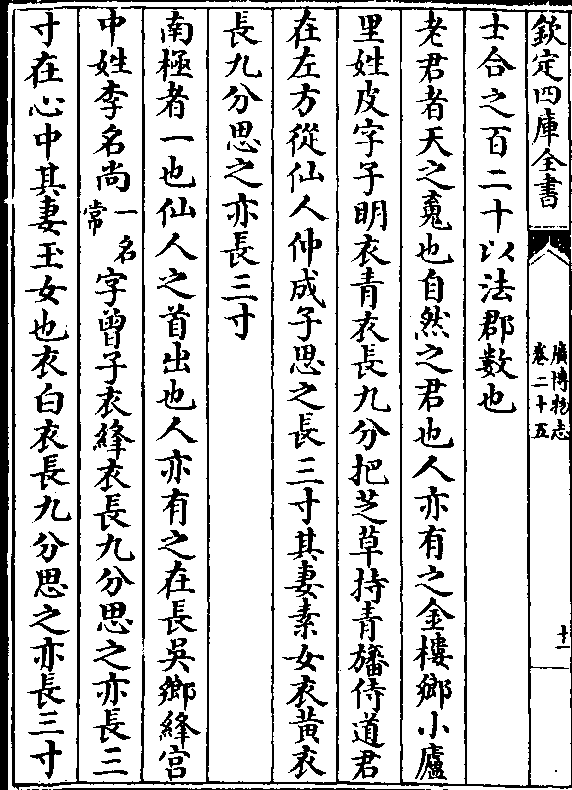 欽定四庫全書
廣博物志
卷二十五
十一
士合之百二十以法郡數也
老君者天之䰟也自然之君也人亦有之金樓鄉小廬
里姓皮字子明衣青衣長九分把芝草持青旛侍道君
在左方從仙人仲成子思之長三寸其妻素女衣黃衣
長九分思之亦長三寸
南極者一也仙人之首出也人亦有之在長吳鄉絳宮
中姓李名尚一名常字曾子衣絳衣長九分思之亦長三
寸在心中其妻玉女也衣白衣長九分思之亦長三寸